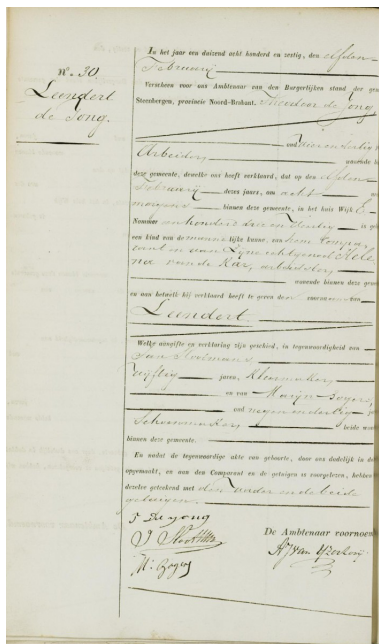 N.º 30.
Leendert
de Jong.
In het jaar een duizend acht honderd en zestig, den elfden
Februarij
Verscheen voor ons Ambtenaar van den Burgerlijken stand der gem
Steenbergen, provincie Noord-Brabant. Theodoor de Jong
oud vier en dertig
Arbeider wonende b
deze gemeente, dewelke ons heeft verklaard, dat op den elfden
Februarij dezes jaars, om acht
morgens binnen deze gemeente, in het huis Wijk E
Nommer een honderd drie en twintig is geb
een kind van de mannelijke kunne, van hem Compa
rant en van zijne echtgenoot Hele
na van de Kar, arbeidster
wonende binnen deze gem
en aan hetwelk hij verklaard heeft te geven den voornaam van
Leendert
Welke aangifte en verklaring zijn geschied, in tegenwoordigheid van
van
vijftig jaren, Kleermaker
en van Marijn Bogers
oud negen en dertig
Schoenmaker beide won
binnen deze gemeente.
En nadat de tegenwoordige akte van geboorte, door ons dadelijk in dub
opgemaakt, en aan den Comparant en de getuigen is voorgelezen, hebben
dezelve geteekend met den vader en de beide
getuigen.
T De Jong
De Ambtenaar voornoem
M. Bogers